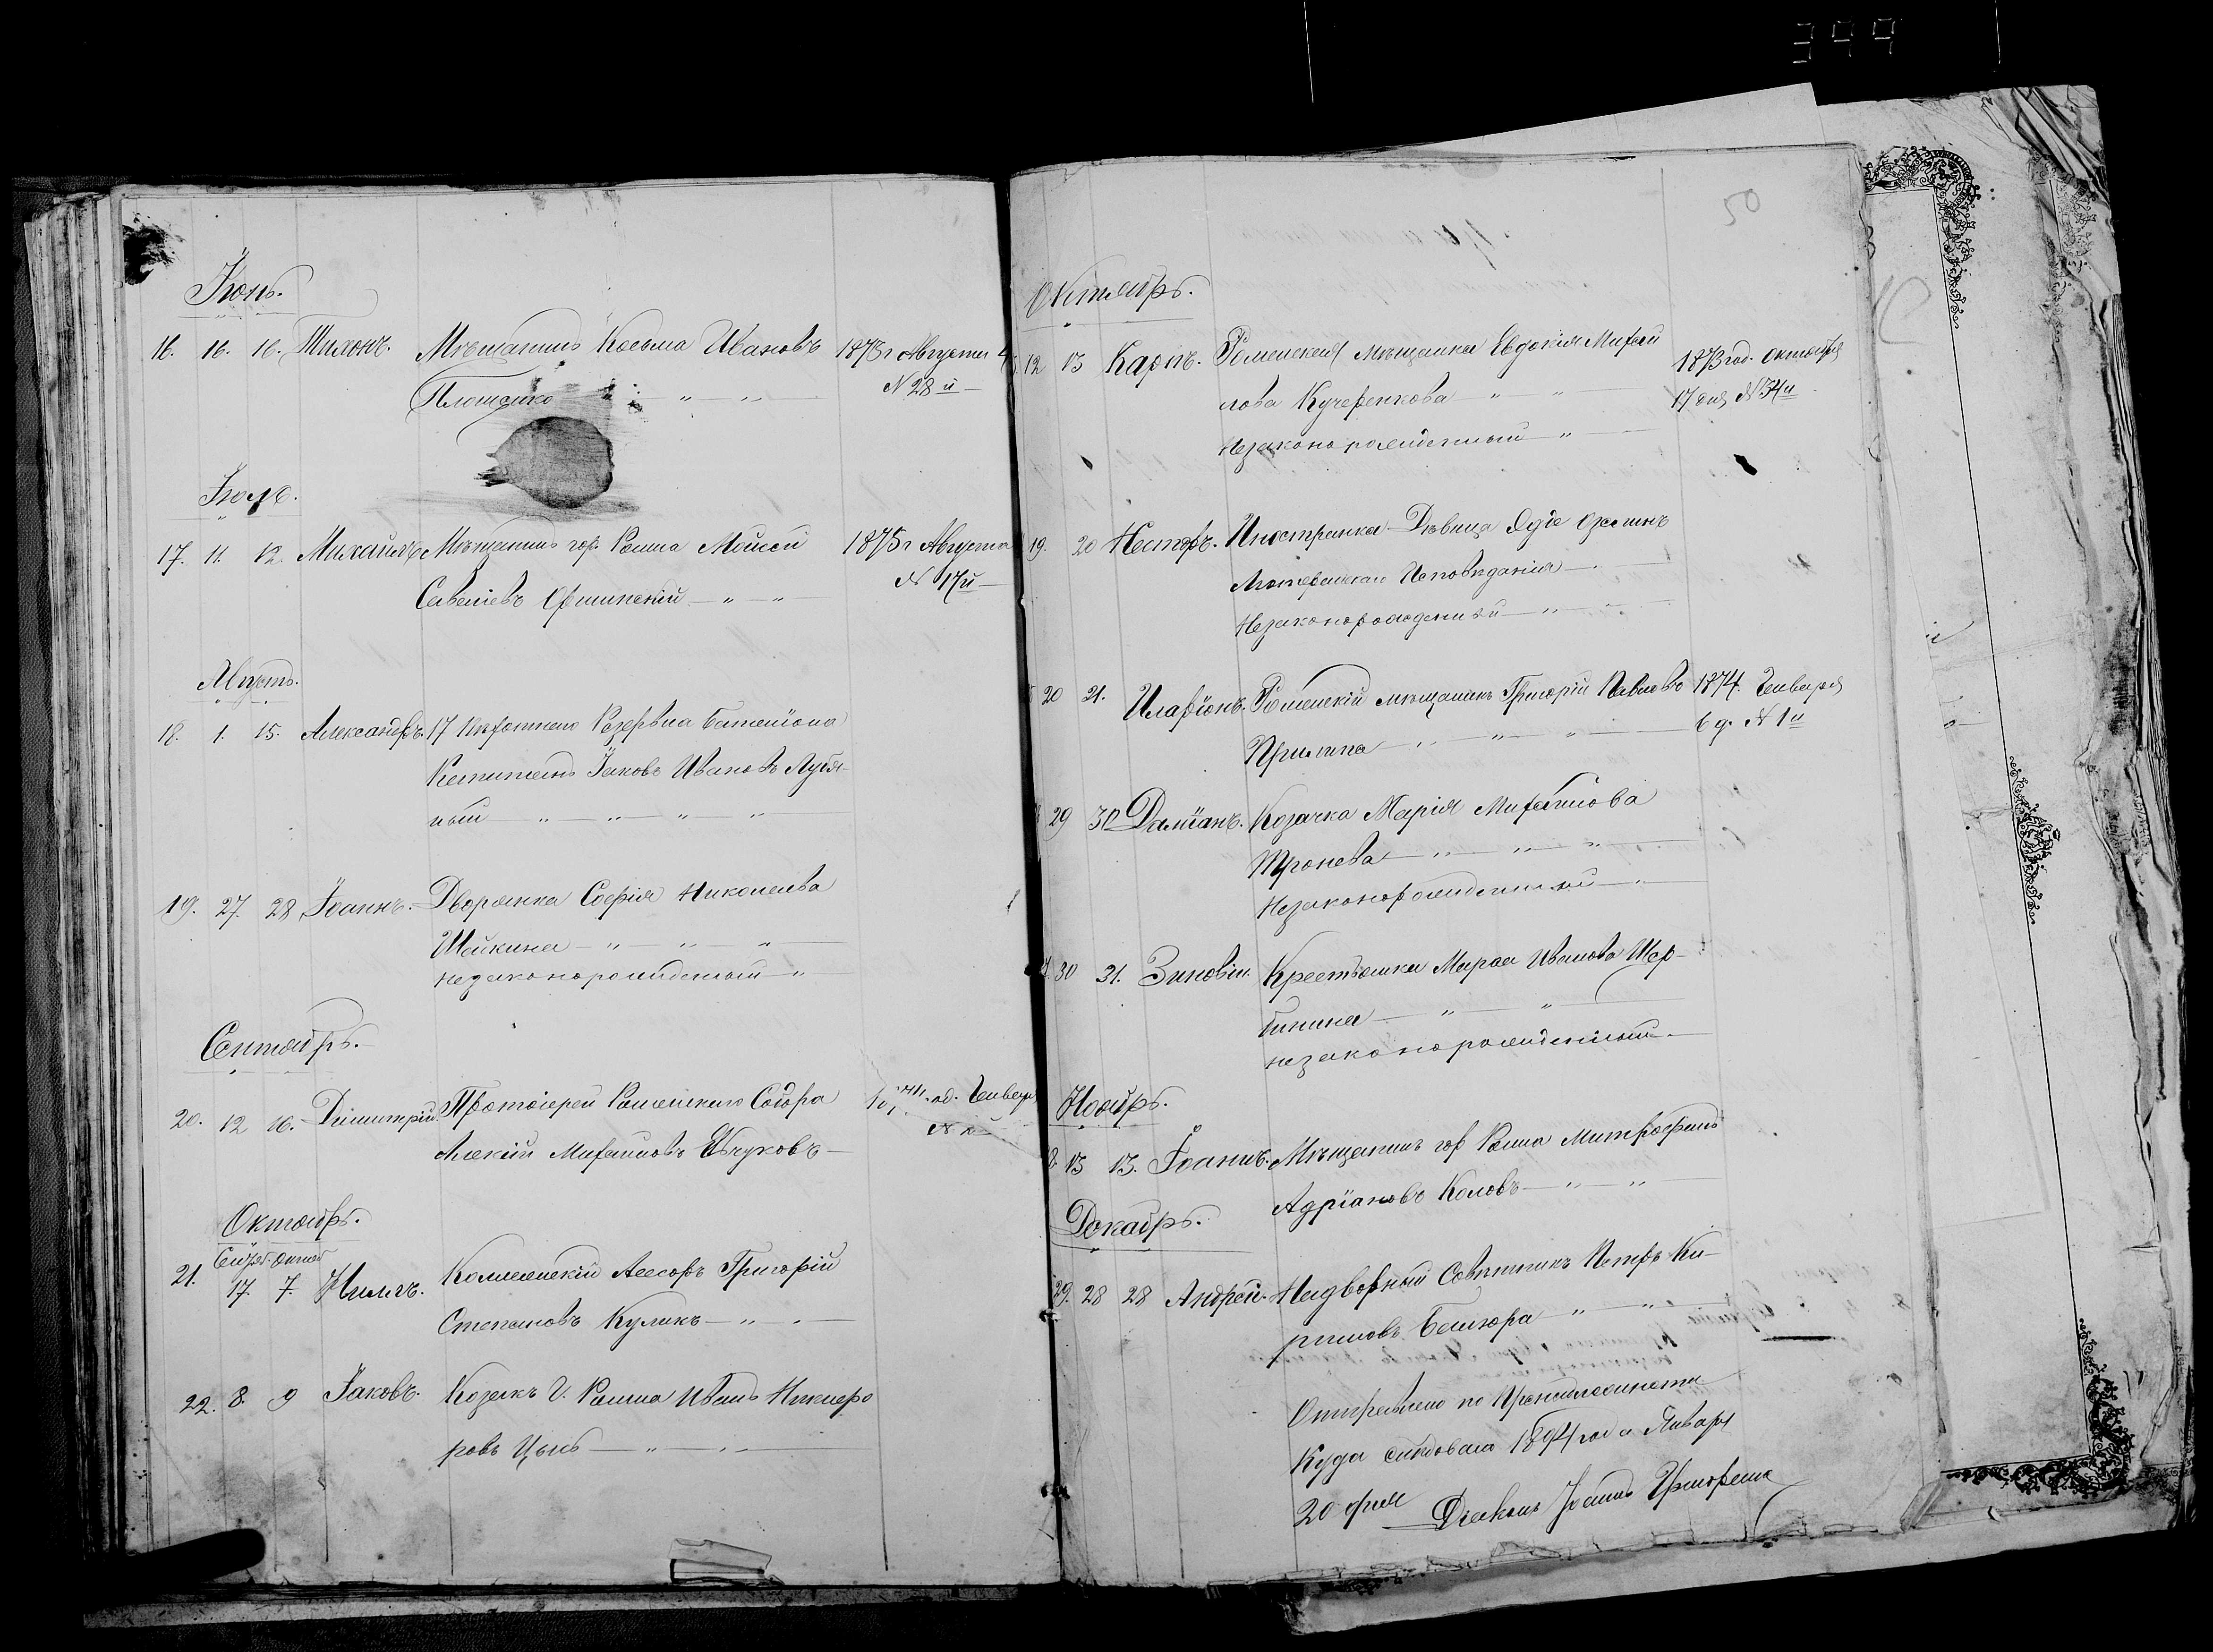 399
Іюнь.
16. 16. 16. Тихонъ. Мѣщанинъ Косьма Ивановъ 1873 г Августа 4
Плотещко — " — " — N 28 й —
Іюль.
17. 11. 12. Михаилъ Мѣщанинъ гор. Ромна Моисей 1875 г Августа
Савеліевъ — " — " — N 17й —
Августъ.
18. 1. 15. Александръ. 17 Пѣхотнаго Резервна Баталіона
Капитанъ Іаковъ Ивановъ Лубя-
ный — " — " — " — " —
19. 27. 28 Іоаннъ. Дворянка Софія Николаева
Шайкина — " — " — " —
незаконорожденный — "
Сентябрь.
20. 12 16. Димитрій. Протоіерей Роменскаго Собора Генваря
Алексій Михаиловъ —
Октябрь.
Сентяб. Октяб
21. 17. 7. Нилъ. Коллежскій Асесоръ Григорій
Степановъ Куликъ — " — " —
22. 8. 9 Іаковъ. Козакъ г. Ромна Иванъ Никифо
ровъ Цысь — " — " —
50
Октябрь.
12 13 Карпъ. Роменская Мѣщанка Евдокія Михаи 1873 год. Октября
лова Кучеренкова — " — " — 17 дня N 34й
Незаконорожденный — " —
19. 20 Несторъ. Иностранка Дѣвица
Лютеранскаго Исповѣданія — " —
Незаконорожденный — " — " —
20 21. Иларіонъ. Роменскій мѣщанинъ Григорій Павловъ 1874. Генваря
Прилипа — " — " — " — 6 д. N 1й
29 30 Даміанъ. Козачка Марія Михаилова
Тронева — " — " — " —
Незаконорожденный — " —
30 31. Зиновій. Крестьянка Мараа Иванова Щер-
бинина — " — " —
незаконорожденный —
Ноябрь.
13 13. Іоаннъ. Мѣщанинъ гор Ромна Митрофанъ
Адріановъ Коловъ — " — " —
Декабрь.
29. 28 28 Андрей. Надворный Совѣтникъ Петръ Ки-
риловъ Башкора — " — " —
Отправлено по Принадлежности
Куда слѣдовало 1894 года Января
20 дня Діаконъ Іоаннъ